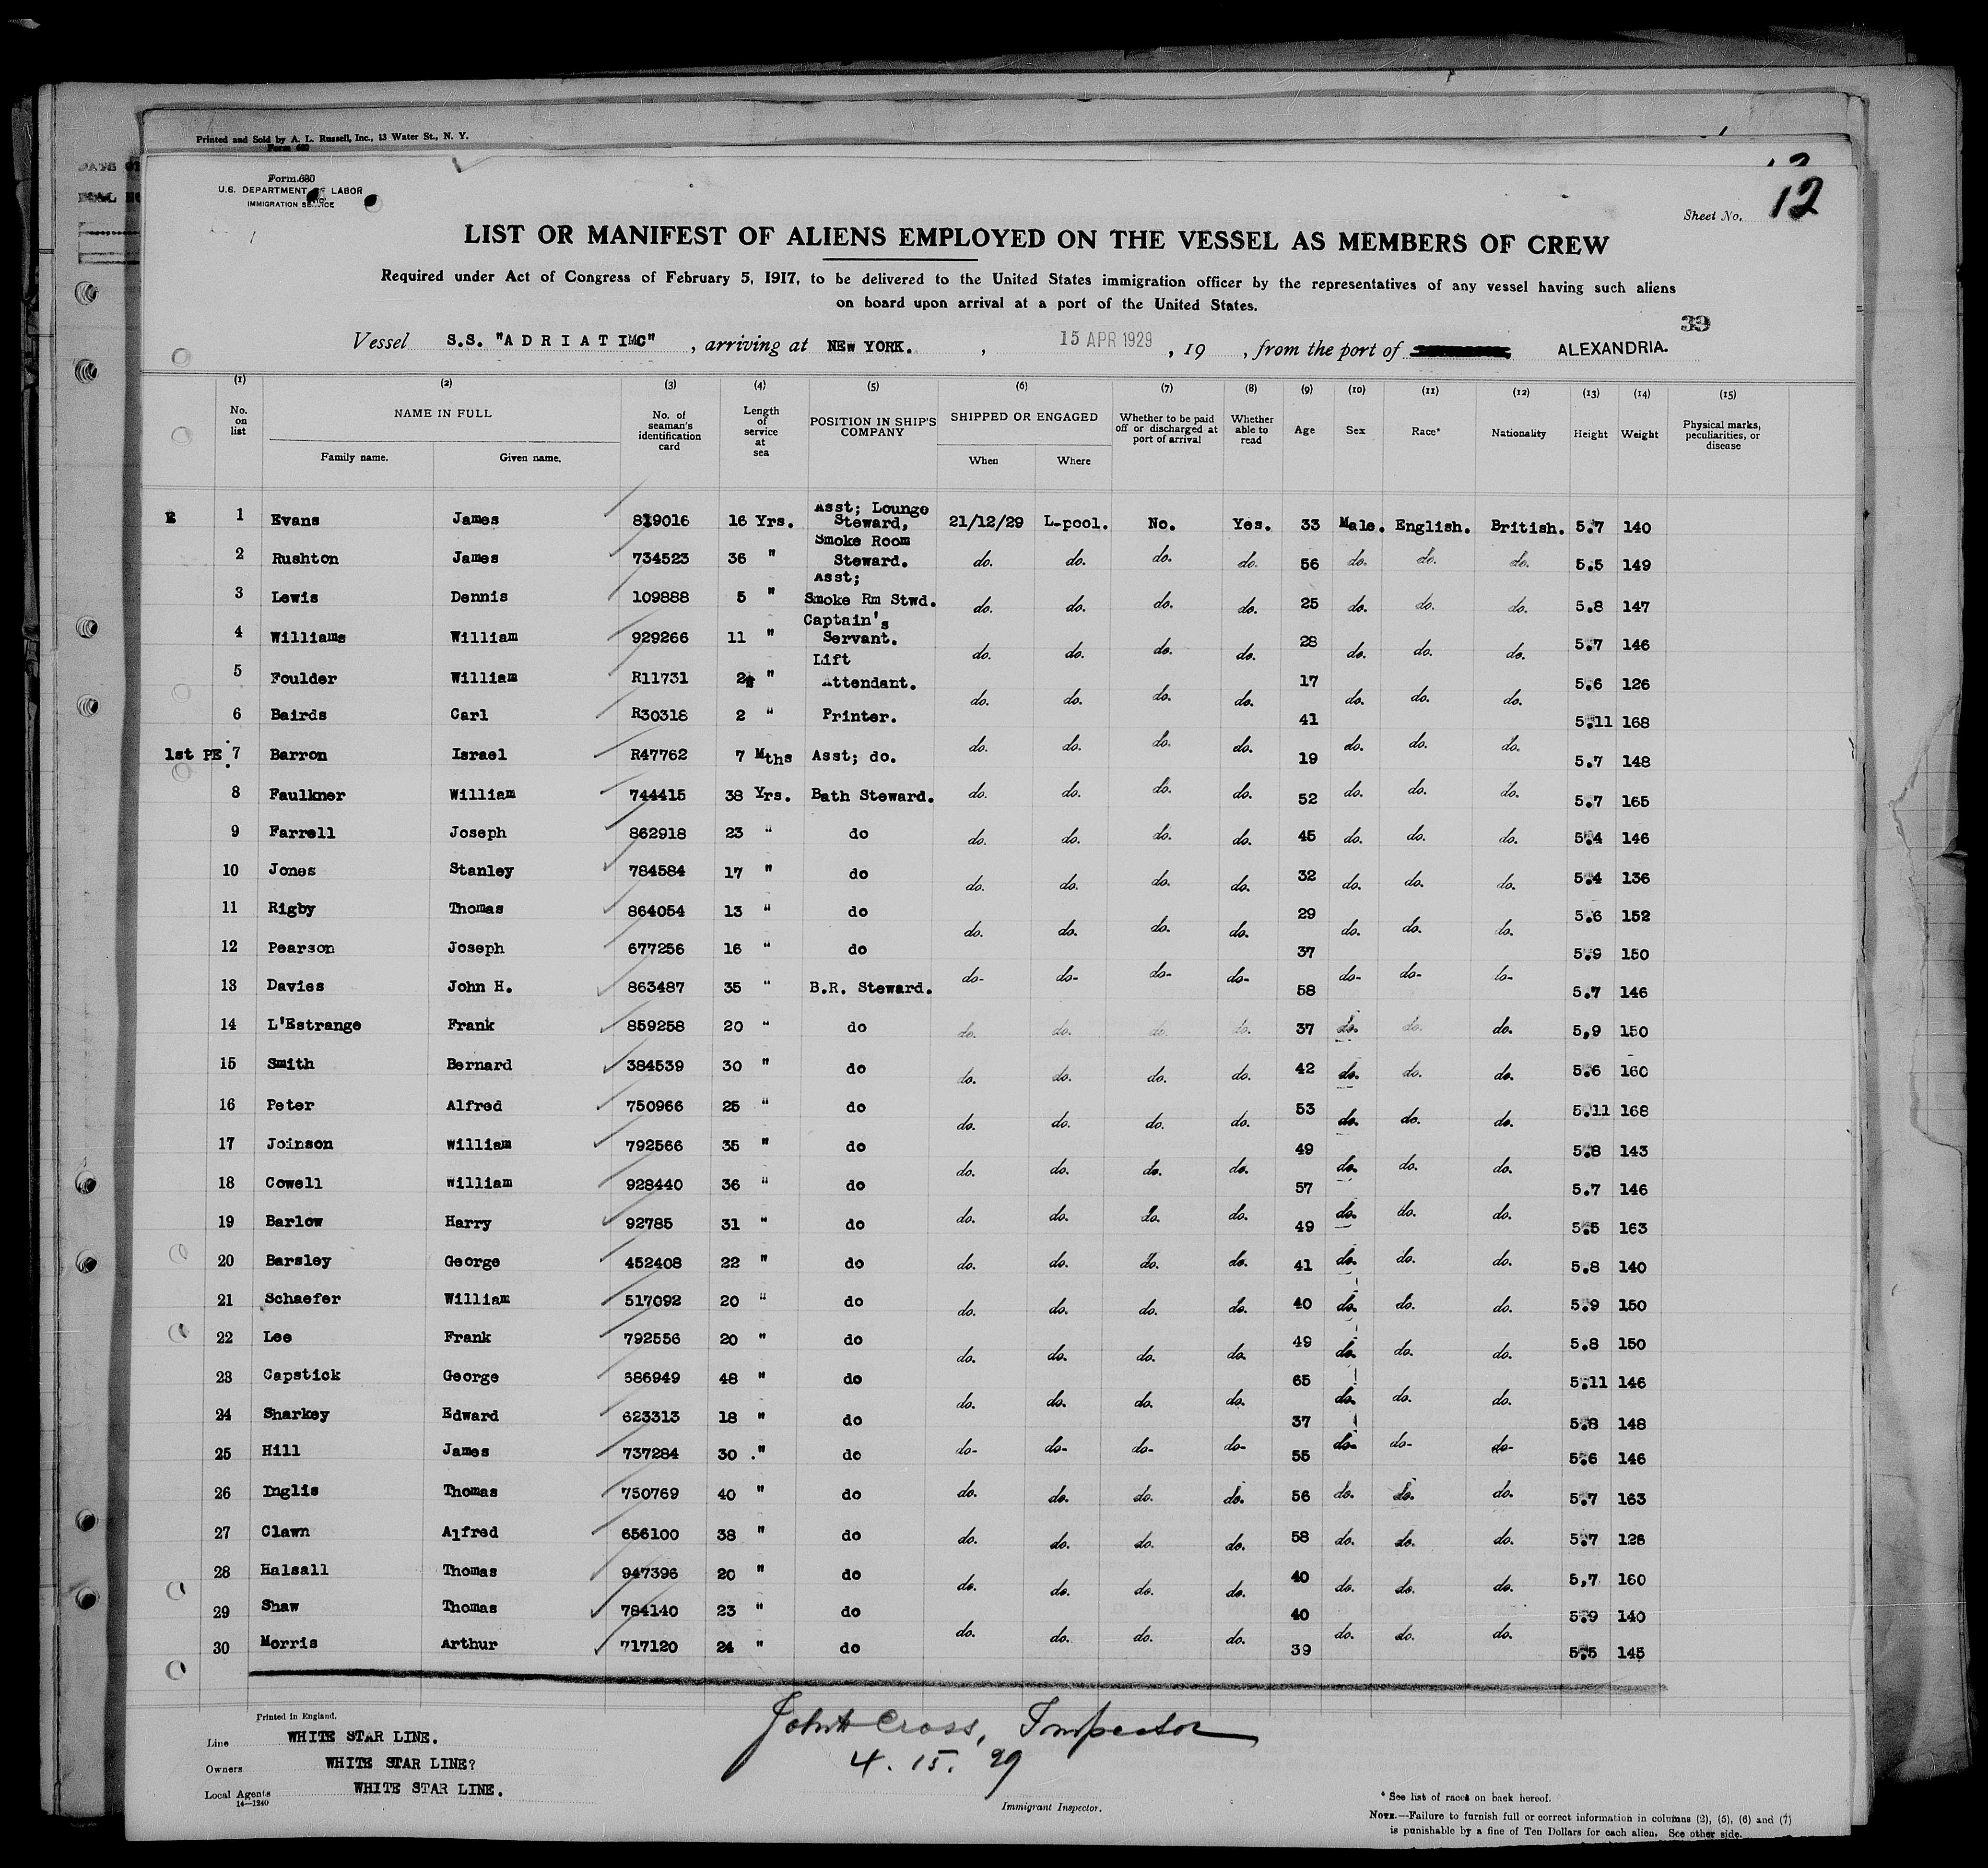 Printed and Sold by A. L. Russell, Inc., 13 Water St., N. Y.
Form 680
Form 680
U.S. DEPARTMENT OF LABOR
IMMIGRATION SERVICE
12
Sheet No. 12
LIST OR MANIFEST OF ALIENS EMPLOYED ON THE VESSEL AS MEMBERS OF CREW
Required under Act of Congress of February 5, 1917, to be delivered to the United States immigration officer by the representatives of any vessel having such aliens
on board upon arrival at a port of the United States.
39
Vessel S.S. "ADRIATIC" , arriving at NEW YORK. , 15 APR 1929 , 19 , from the port of ALEXANDRIA.
(1) (2) (3) (4) (5) (6) (7) (8) (9) (10) (11) (12) (13) (14) (15)
No. on list NAME IN FULL Family name. Given name. No. of seaman's identification card Length of service at sea POSITION IN SHIP'S COMPANY SHIPPED OR ENGAGED When Where Whether to be paid off or discharged at port of arrival Whether able to read Age Sex Race* Nationality Height Weight Physical marks, peculiarities, or disease
E 1 Evans James 819016 16 Yrs. Asst; Lounge Steward, 21/12/29 L-pool. No. Yes. 33 Male. English. British. 5.7 140
2 Rushton James 734523 36 " Smoke Room Steward. do. do. do. do. 56 do. do. do. 5.5 149
3 Lewis Dennis 109888 5 " Asst; Smoke Rm Stwd. do. do. do. do. 25 do. do. do. 5.8 147
4 Williams William 929266 11 " Captain's Servant. do. do. do. do. 28 do. do. do. 5.7 146
5 Foulder William R11731 2½ " Lift Attendant. do. do. do. do. 17 do. do. do. 5.6 126
6 Bairds Carl R30318 2 " Printer. do. do. do. do. 41 do. do. do. 5.11 168
1st PE 7 Barron Israel R47762 7 Mths Asst; do. do. do. do. do. 19 do. do. do. 5.7 148
8 Faulkner William 744415 38 Yrs. Bath Steward. do. do. do. do. 52 do. do. do. 5.7 165
9 Farrell Joseph 862918 23 " do do. do. do. do. 45 do. do. do. 5.4 146
10 Jones Stanley 784584 17 " do do. do. do. do. 32 do. do. do. 5.4 136
11 Rigby Thomas 864054 13 " do do. do. do. do. 29 do. do. do. 5.6 152
12 Pearson Joseph 677256 16 " do do- do- do- do- 37 do- do- do- 5.9 150
13 Davies John H. 863487 35 " B.R. Steward. 58 5.7 146
14 L'Estrange Frank 859258 20 " do do. do. do. do. 37 do. do. do. 5,9 150
15 Smith Bernard 384539 30 " do do. do. do. do. 42 do. do. do. 5.6 160
16 Peter Alfred 750966 25 " do do. do. do. do. 53 do. do. do. 5.11 168
17 Joinson William 792566 35 " do do. do. do. do. 49 do. do. do. 5.8 143
18 Cowell William 928440 36 " do do. do. do. do. 57 do. do. do. 5.7 146
19 Barlow Harry 92785 31 " do 49 5.5 163
20 Barsley George 452408 22 " do do. do. do. do. 41 do. do. do. 5.8 140
21 Schaefer William 517092 20 " do do. do. do. do. 40 do. do. do. 5.9 150
22 Lee Frank 792556 20 " do do. do. do. do. 49 do. do. do. 5.8 150
23 Capstick George 686949 48 " do do. do. do. do. 65 do. do. do. 5.11 146
24 Sharkey Edward 623313 18 " do 37 5.8 148
25 Hill James 737284 30 " do do- do- do- do- 55 do- do- do- 5.6 146
26 Inglis Thomas 750769 40 " do do. do. do. do. 56 do. do. do. 5.7 163
27 Clawn Alfred 656100 38 " do do. do. do. do. 58 do. do. do. 5.7 126
28 Halsall Thomas 947396 20 " do do. do. do. do. 40 do. do. do. 5,7 160
29 Shaw Thomas 784140 23 " do 40 5.9 140
30 Morris Arthur 717120 24 " do do. do. do. do. 39 do. do. do. 5.5 145
Printed in England.
Line WHITE STAR LINE.
Owners WHITE STAR LINE?
Local Agents WHITE STAR LINE.
14—1240
John H Cross, Inspector
4. 15. 29
Immigrant Inspector.
* See list of races on back hereof.
NOTE.—Failure to furnish full or correct information in columns (2), (5), (6) and (7)
is punishable by a fine of Ten Dollars for each alien. See other side.